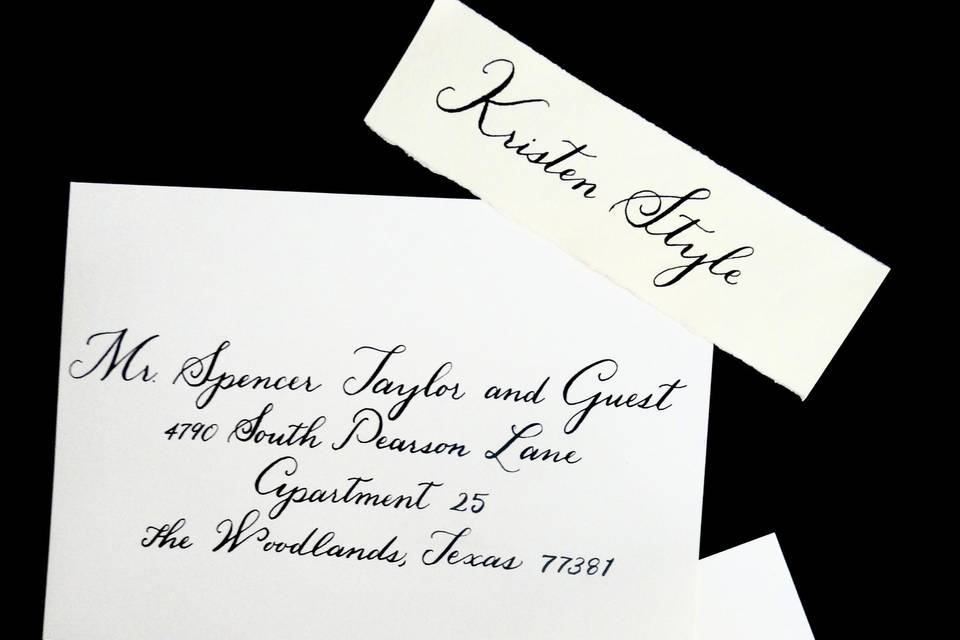 Kristen Style
Mr. Spencer Taylor and Guest
4790 South Pearson Lane
Apartment 25
The Woodlands, Texas 77381